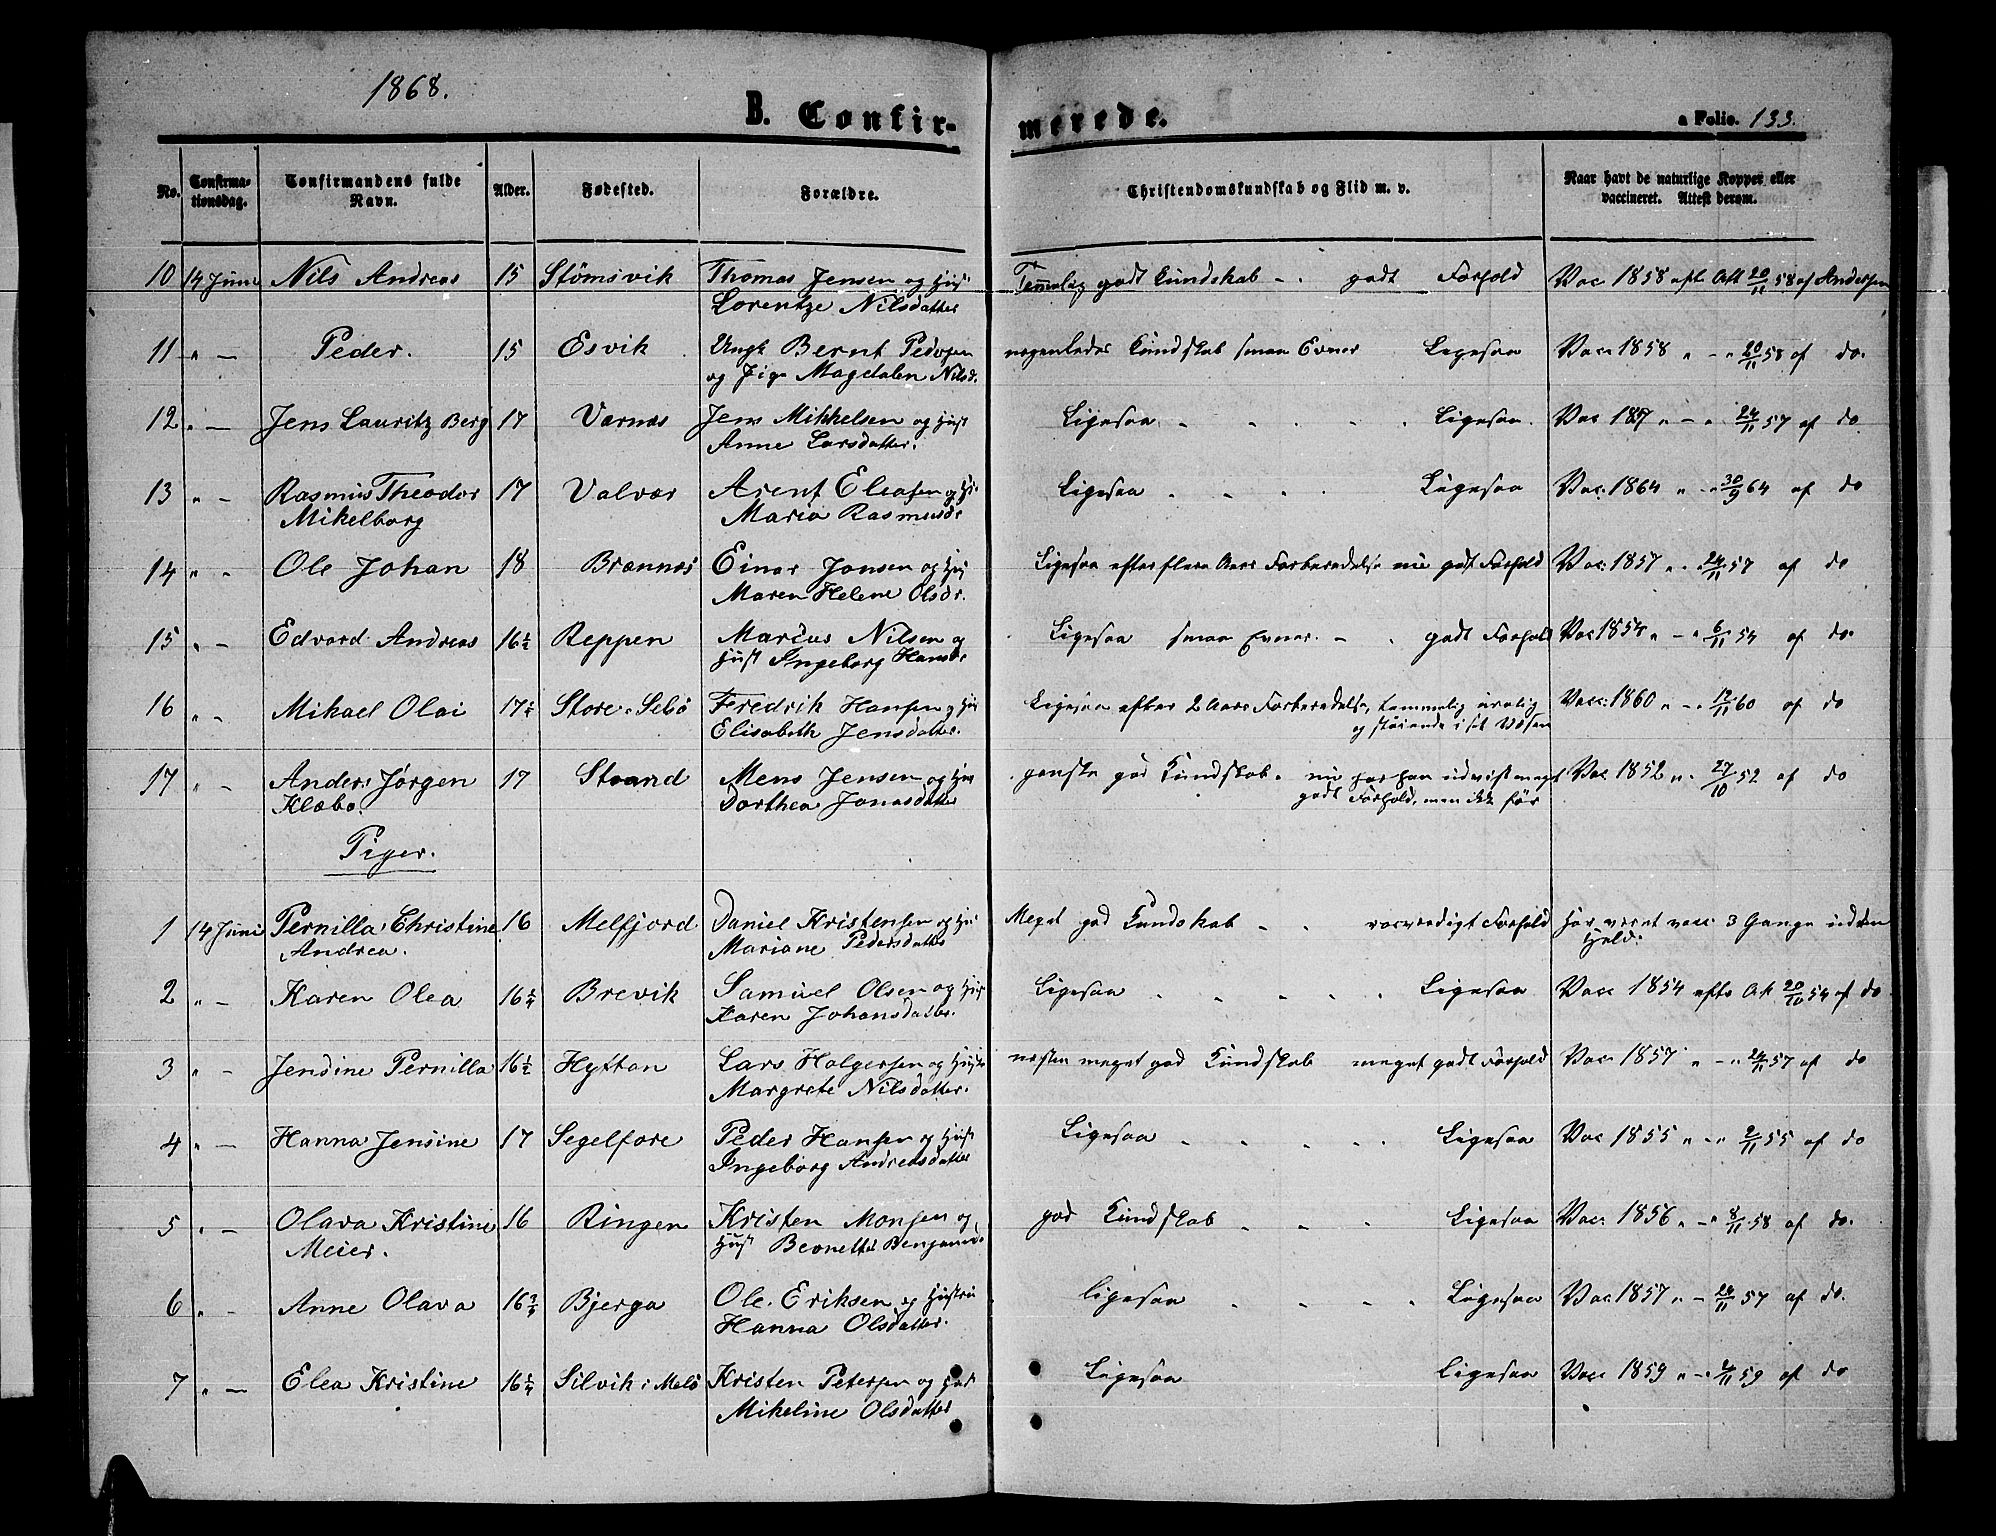 1868.
B. Confir-
merede.
a Folio. 133.
No.
Confirma-
tionsdag.
Confirmandens fulde
Navn.
Alder.
Fødested.
Forældre.
Christendomskundskab og Flid m. v.
Naar havt de naturlige Kopper eller
vaccineret. Attest derom.
10 14 Juni Nils Andreas 15 Stömsvik Thomas Jensen og Hust Temmelig godt Kundskab - . godt Forhold Vac 1858 eft Att 20/11 58 af Andersen
Lorentze Nilsdatter
11 " — Peder. 15 Esvik Ungk Bernt Pedersen nogenledes Kundskab smaa Evner Ligesaa Vac 1858 " - " 20/11 58 af do.
og Pige Magdalen Nilsd.
12 " — Jens Lauritz Berg 17 Varnæs Jens Mikkelsen og Hust Ligesaa " . . . . Ligesaa. Vac 187 " - " 24/11 57 af do
Anne Larsdatter.
13 " - Rasmus Theodor 17 Valvær Arent Eleasen og H. Ligesaa . . . Ligesaa Vac. 1864 " - " 30/9 64 af do
Mikelborg Maria Rasmusdr
14 " - Ole Johan 18 Brænnæs Einar Jonsen og Hus Ligesaa efter flere Aars Forberedelse nu godt Forhold Vac. 1857 " - " 24/11 57 af do
Maren Helene Olsdr.
15 " - Edvard Andreas 16½ Reppen Marcus Nilsen og Ligesaa smaa Evner. - . godt Forhold Vac 1854 " - " 6/11 54 af do.
Hust Ingeborg Hansdr
16 " - Mikael Olai 17¼ Store Selsö Fredrik Hansen og Hus Ligesaa efter 2 Aars Forberedelse, temmelig urolig Vacc. 1860 " - " 12/11 60 af do
Elisabeth Jensdatter. og støiende i sit Væsen
17 " - Anders Jørgen 17 Strand Mens Jensen og Hus ganske god Kundskab. nu har han udvist meget Vac 1852 " . 27/10 52 af do
Klæbo. Dorthea Jonasdatter godt Forhold, men ikke før
Piger.
1 14 Juni Pernilla Christine 16 Melfjord Daniel Kristensen og Hus Meget god Kundskab - . roesværdigt Forhold Har været vacc 3 Gange uden
Andrea. Mariane Pedersdatter Held.
2 " - Karen Olea 16¼ Brevik Samuel Olsen og Hus Ligesaa . . . . . Ligesaa Vacc 1854 efter Att 20/10 54 af do
Karen Johansdatter.
3 " - Jensine Pernilla 16½ Hyttan Lars Holgersen og Hustr næsten meget god Kundskab meget godt Forhold Vac 1857 " - " 24/11 57 af do
Margrete Nilsdatter.
4 " — Hanna Jensine 17 Segelfore Peder Hansen og Hust Ligesaa . . . . Ligesaa Vac 1855 " - " 2/11 55 af do
Ingeborg Andreasdatter
5 " — Olava Kristine 16 Ringen Kristen Monsen og god Kundskab . . . Ligesaa Vac. 1856 " - " 8/11 58 af do.
Meier. Hust Beonette Benjamind.
6 " - Anne Olava 16¾ Bjerga Ole Eriksen og Hustru ligesaa . . . . Ligesaa Vac. 1857 " - 24/11 57 af do.
Hanna Olsdatter.
7 " — Elea Kristine 16¼ Silvik i Melö Kristen Petersen og Hust Ligesaa Ligesaa Vacc 1859 " - " 4/11 59 af do
Mikeline Olsdatter